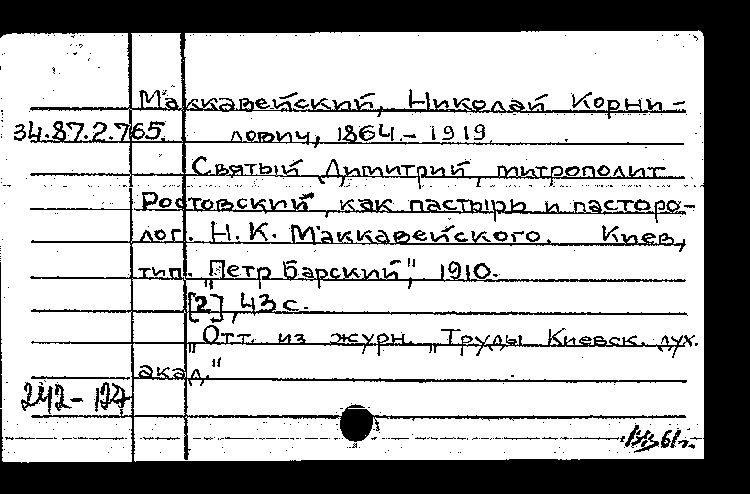 Маккавейский, Николай Корни-
34.87.2.765. лович, 1864.-1919
Святый Димитрий, митрополит
Ростовский, как пастырь и пасторо-
лог. Н.К. Маккавейского. Киев,
тип. "Петр Барский", 1910.
[2], 43 с.
"Отт. из журн. „Труды Киевск. дух.
акад."
242-127
61 г.